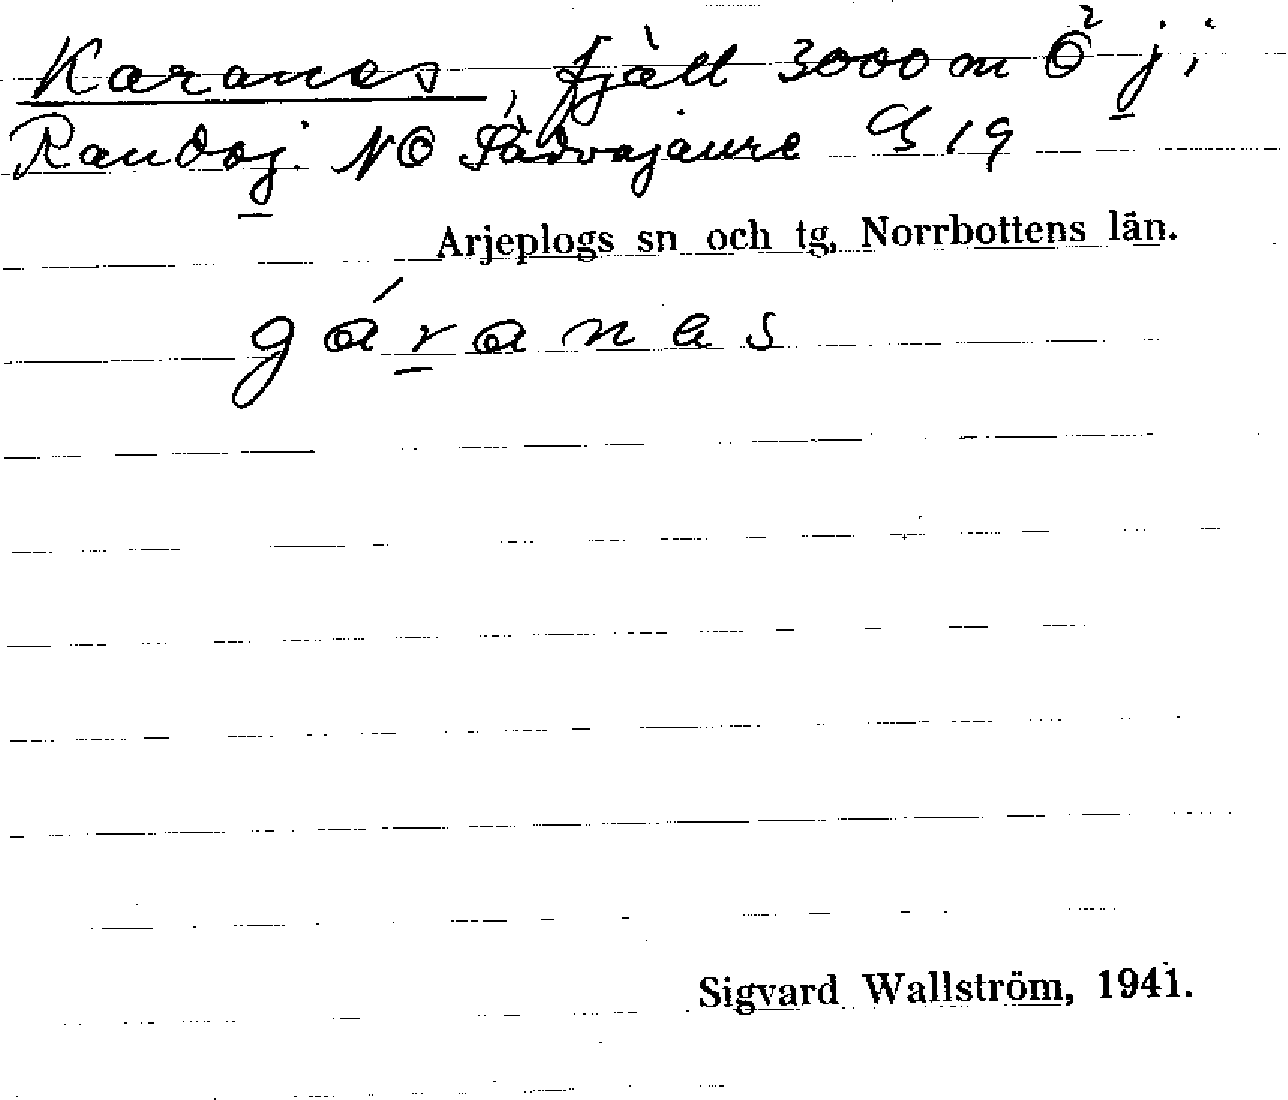 Karanes, fjäll 3000 m Ö² j i
Randoj. NO Sädvajaure G 19
Arjeplogs sn och tg, Norrbottens län.
gáranes
Sigvard Wallström, 1941.